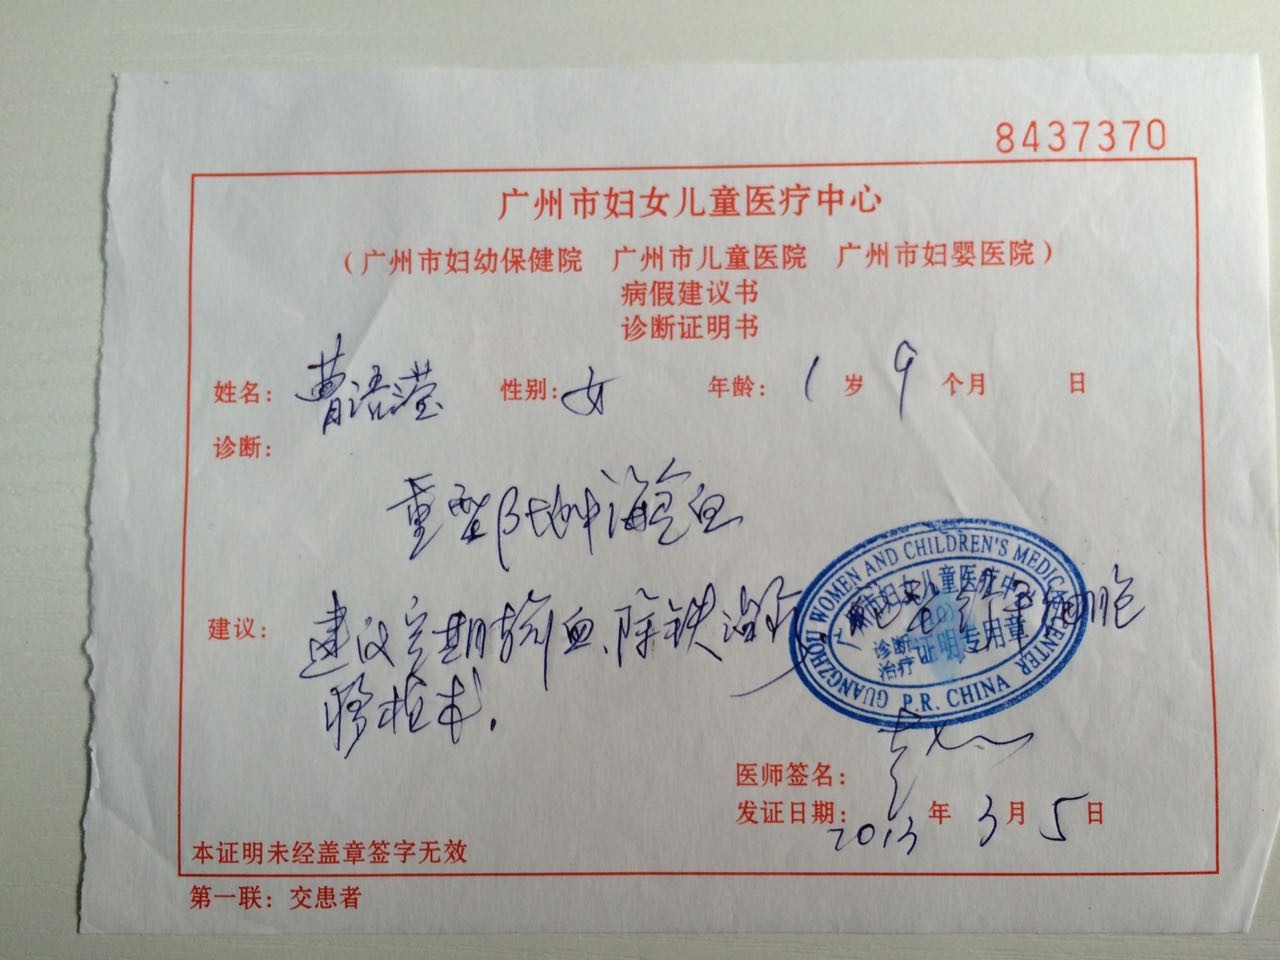 8437370
广州市妇女儿童医疗中心
(广州市妇幼保健院 广州市儿童医院 广州市妇婴医院)
病假建议书
诊断证明书
姓名: 曹语滢 性别: 女 年龄: 1 岁 9 个月 日
诊断:
重型β地中海贫血
建议: 建议定期输血、除铁治疗 干细胞
移植术.
GUANGZHOU WOMEN AND CHILDREN'S MEDICAL CENTER
市妇女儿童医疗中
诊断
治疗 证明专用章
P.R. CHINA
医师签名:
发证日期: 2013 年 3 月 5 日
本证明未经盖章签字无效
第一联: 交患者